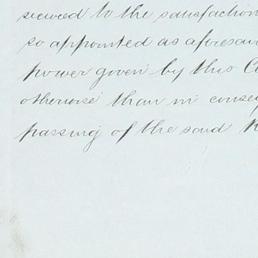 to the satisfaction
so appointed as aforesaid
power given by this
otherwise than in
passing of the said